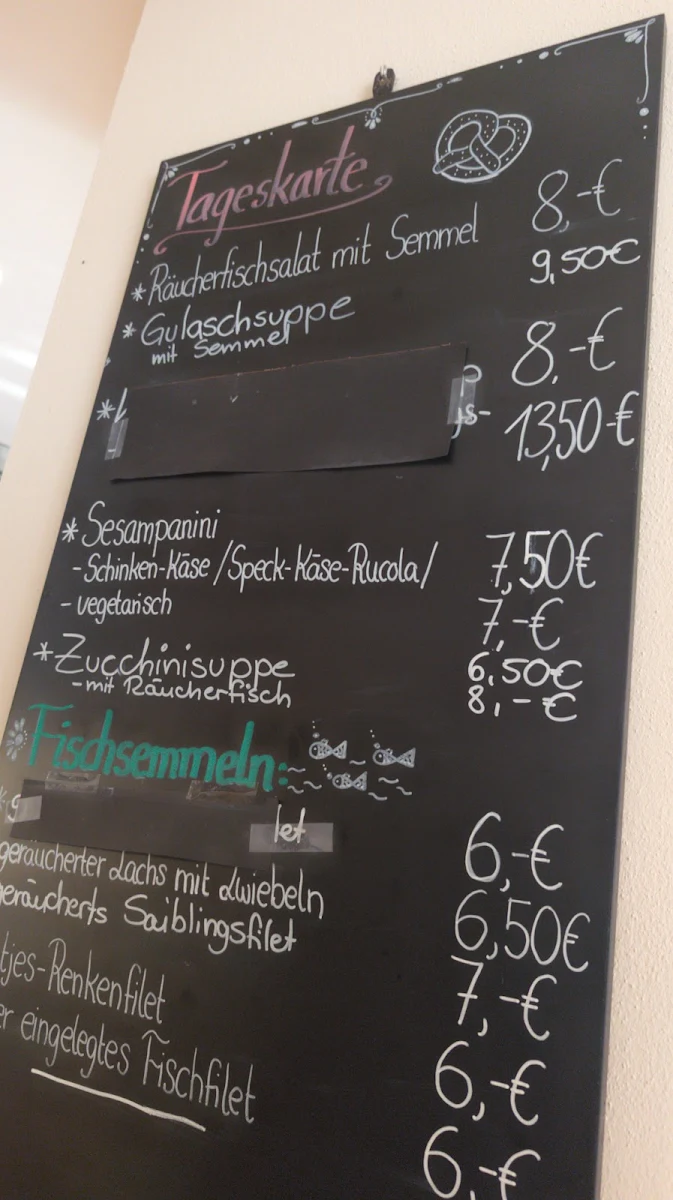 Tageskarte
* Räucherfischsalat mit Semmel 8,-€
* Gulaschsuppe 9,50€
mit Semmel
* 8,-€
js- 13,50-€
* Sesampanini
- Schinken-Käse / Speck-Käse-Rucola / 7,50€
- vegetarisch 7,-€
* Zucchinisuppe 6,50€
- mit Räucherfisch 8,-€
* Fischsemmeln:
* g let 6,-€
geräucherter Lachs mit Zwiebeln 6,50€
eräucherts Saiblingsfilet 7,-€
tjes-Renkenfilet 6,-€
er eingelegtes Fischfilet 6,-€